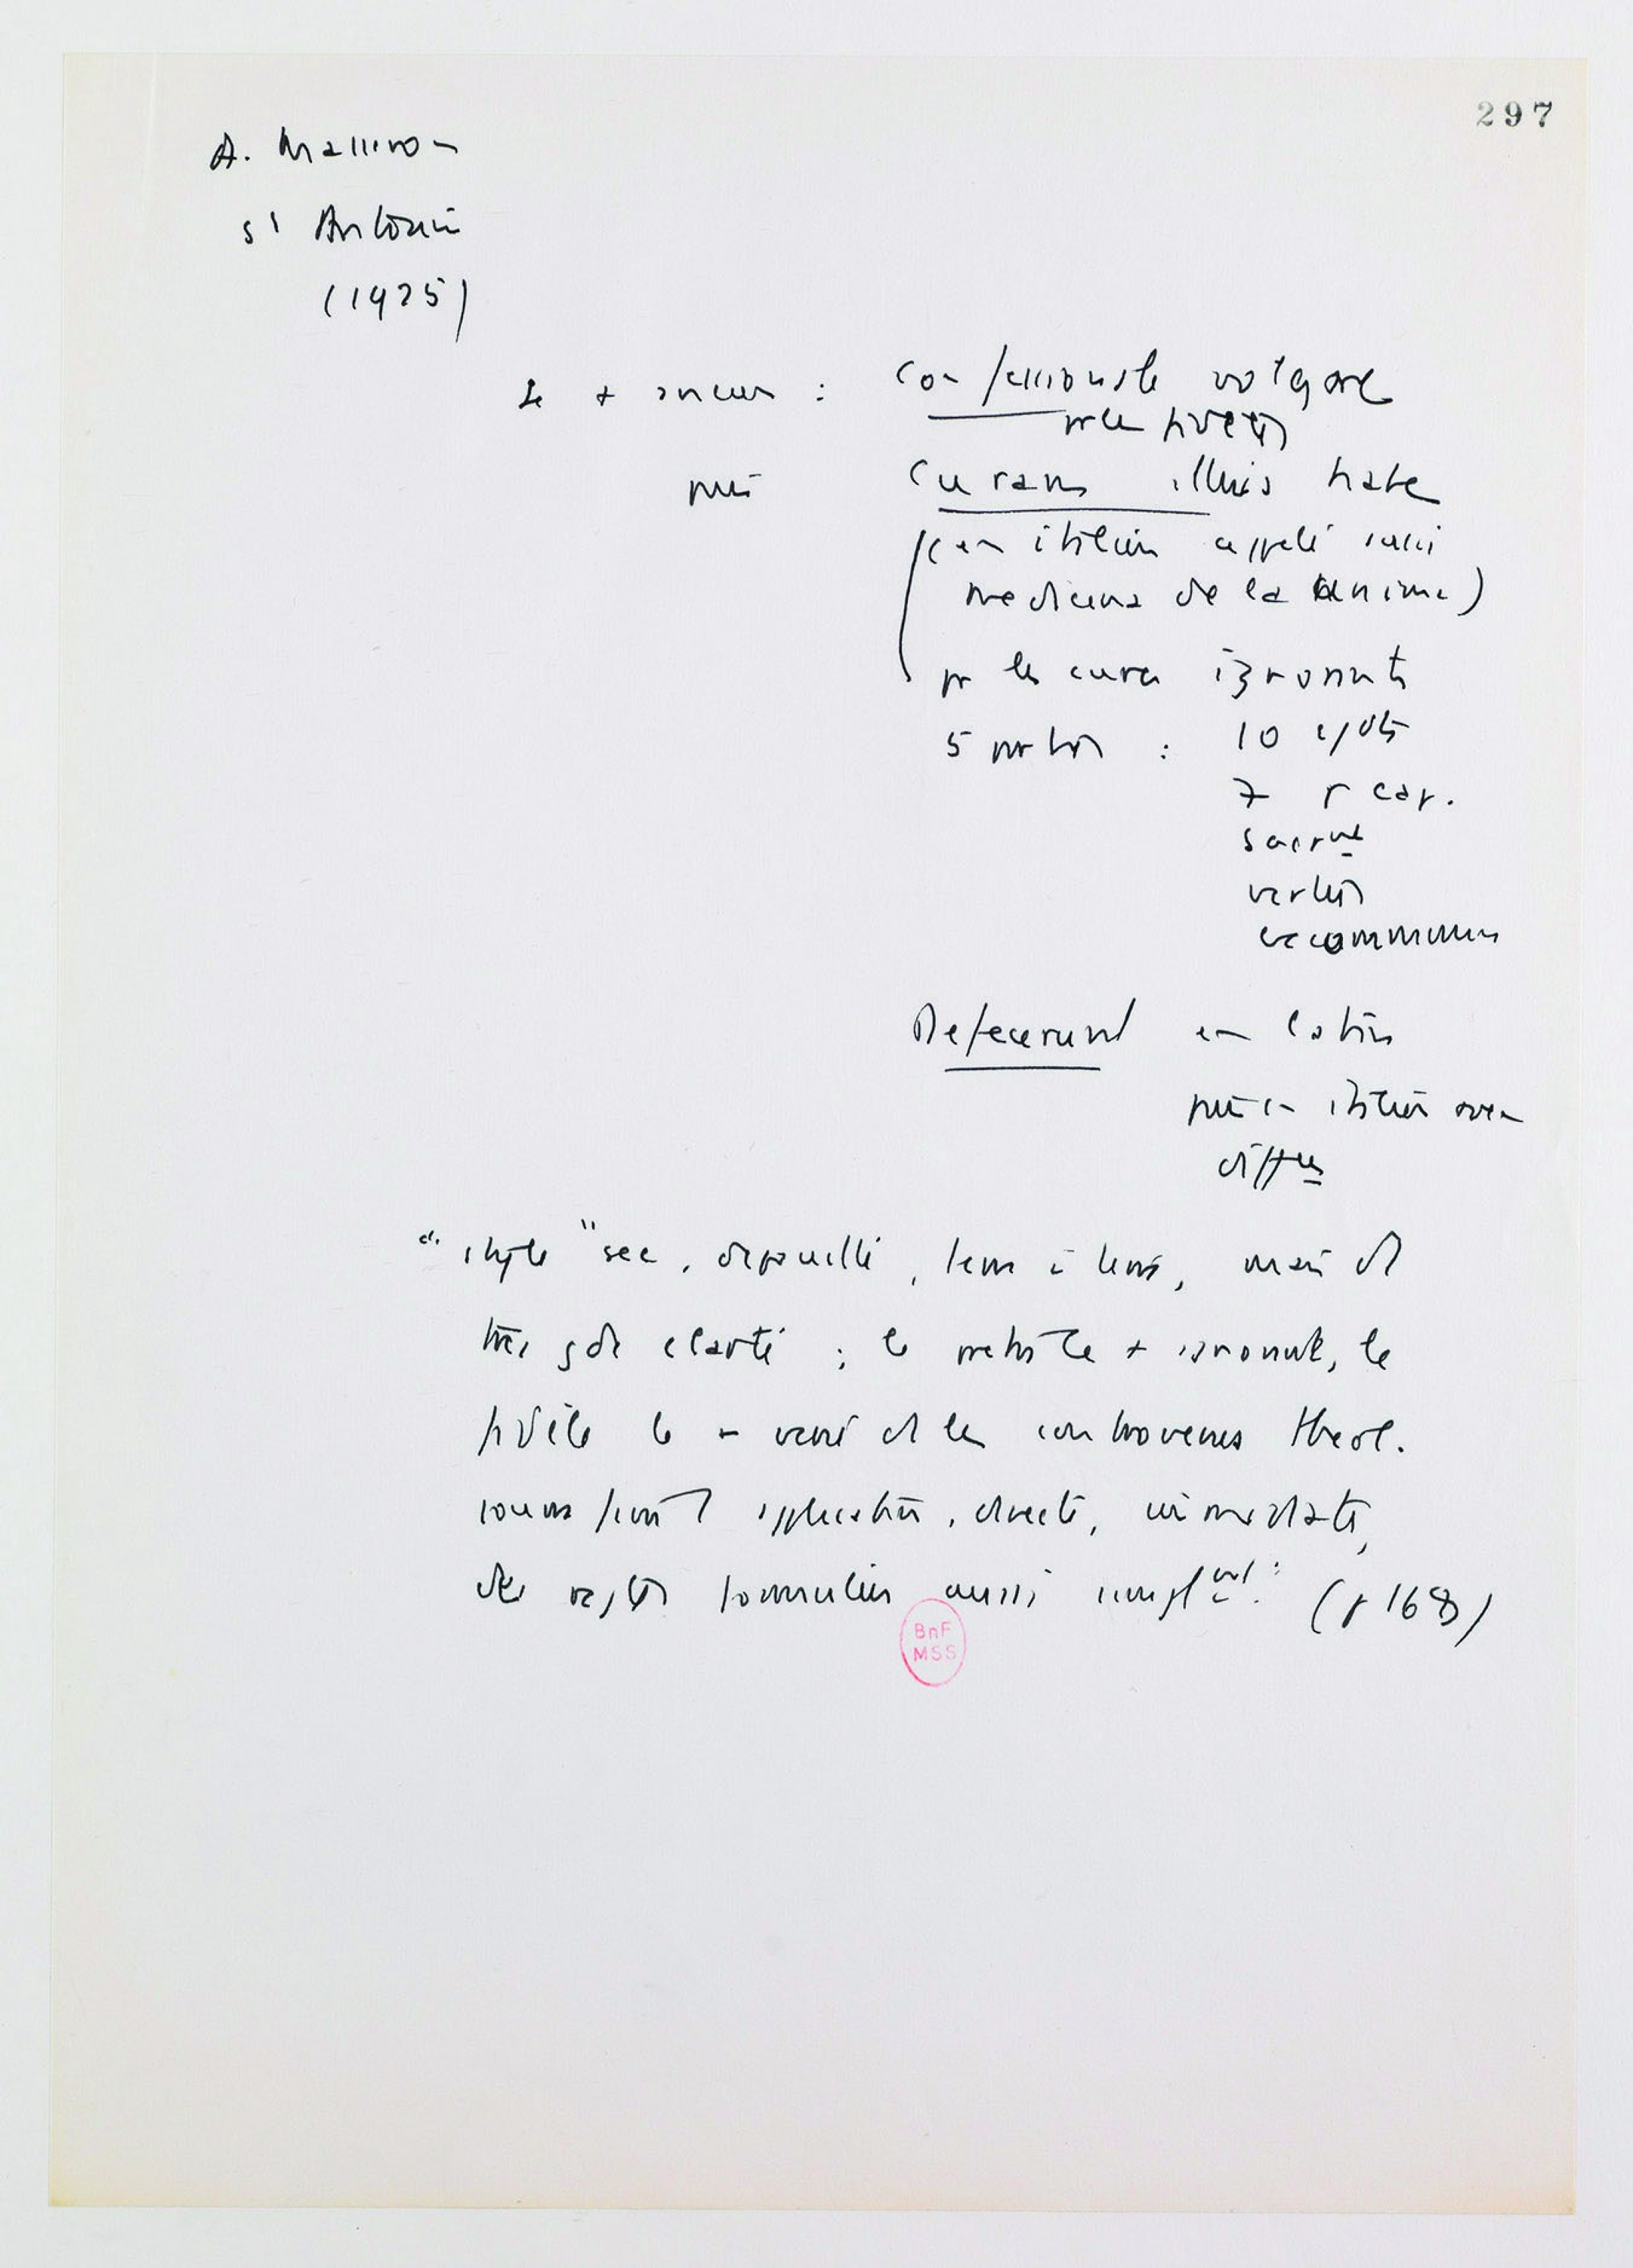 297
A. Masseron
St Antonin
(1925)
Le + ancien : Confessionale volgare
pr les fidèles
puis Curam illius habe
(en italien appelé aussi
medicina de la anima)
pr les curés ignorants
5 parties : 10 cdts
7 p cap.
sacrmt
vertus
excommun
Defecerunt en latin
puis en italien avec
diffces
"style "sec, dépouillé, terre à terre, mais d
très gde clarté ; le prêtre le + ignorant, le
fidèle le - versé ds les controverses théol.
application, directe, immédiate,
de règles formulées aussi simplmt." (p 168)
BnF
MSS